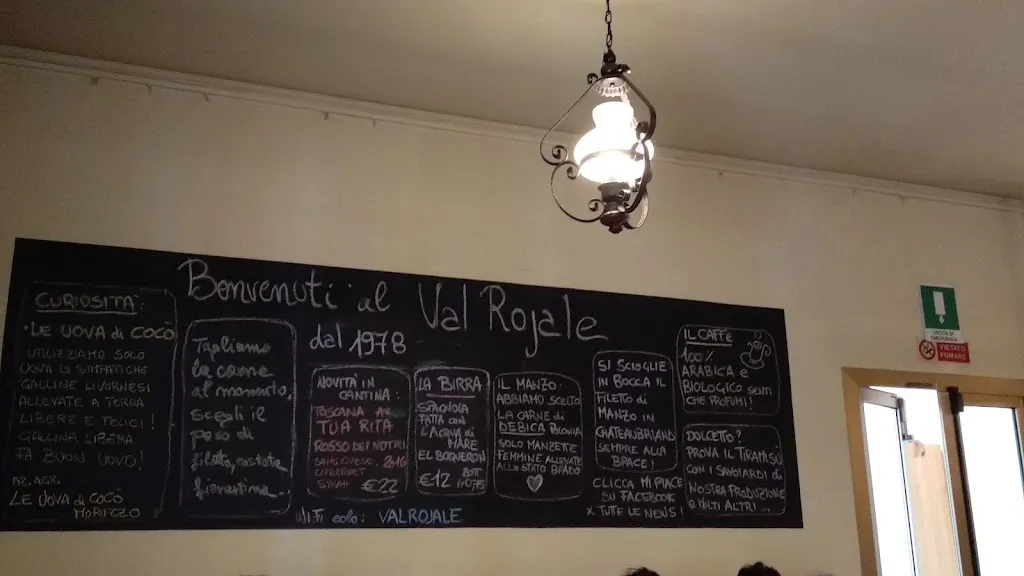 Benvenuti al Val Rojale
dal 1978
CURIOSITÀ:
• LE UOVA di COCÒ
UTILIZZIAMO SOLO
UOVA DI SIMPATICHE
GALLINE LIVORNESI
ALLEVATE A TERRA
LIBERE E FELICI!
GALLINA LIBERA
FA BUON UOVO!
AZ. AGR.
LE UOVA di COCÒ
MORUZZO
Tagliamo
la carne
al momento,
scegli il
peso di
filetto, costata,
fiorentina
NOVITÀ IN
CANTINA:
TOSCANA
TUA RITA
ROSSO DEI NOTRI
SANGIOVESE, 2016
CABERNET
SYRAH
€22
LA BIRRA
SPAGNOLA
FATTA CON
L'ACQUA DI
MARE
EL BOQUERON
€12
IL MANZO:
ABBIAMO SCELTO
LA CARNE di
DEBICA POLONIA
SOLO MANZETTE
FEMMINE ALLEVATE
ALLO STATO BRADO
SI SCIOGLIE
IN BOCCA IL
FILETTO di
MANZO IN
CHATEAUBRIAND
SEMPRE ALLA
BRACE!
CLICCA MI PIACE
SU FACEBOOK
X TUTTE LE NEWS!
IL CAFFÈ
100%
ARABICA e
BIOLOGICO
CHE PROFUMI!
DOLCETTO?
PROVA IL TIRAMISÙ
CON I SAVOIARDI di
NOSTRA PRODUZIONE
E MOLTI ALTRI...
Wi.Fi VALROJALE
USCITA DI
EMERGENZA
VIETATO
FUMARE